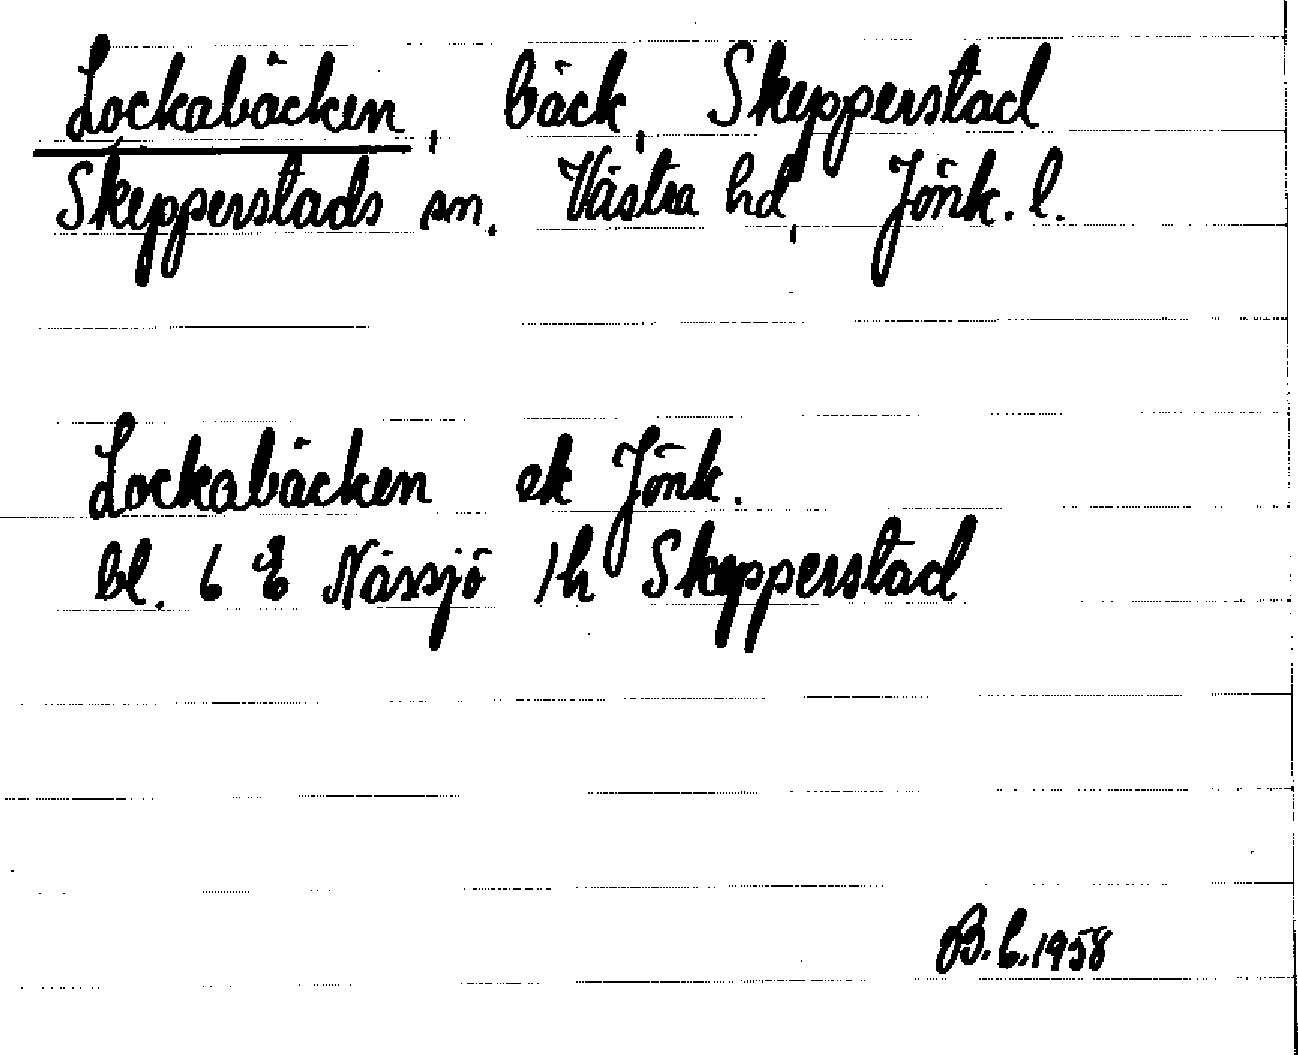 Lockabäcken, bäck, Skepperstad
Skepperstads sn. Västra hd, Jönk. l.
Lockabäcken ek Jönk.
bl. 6 E Nässjö 1h Skepperstad
B.C. 1958